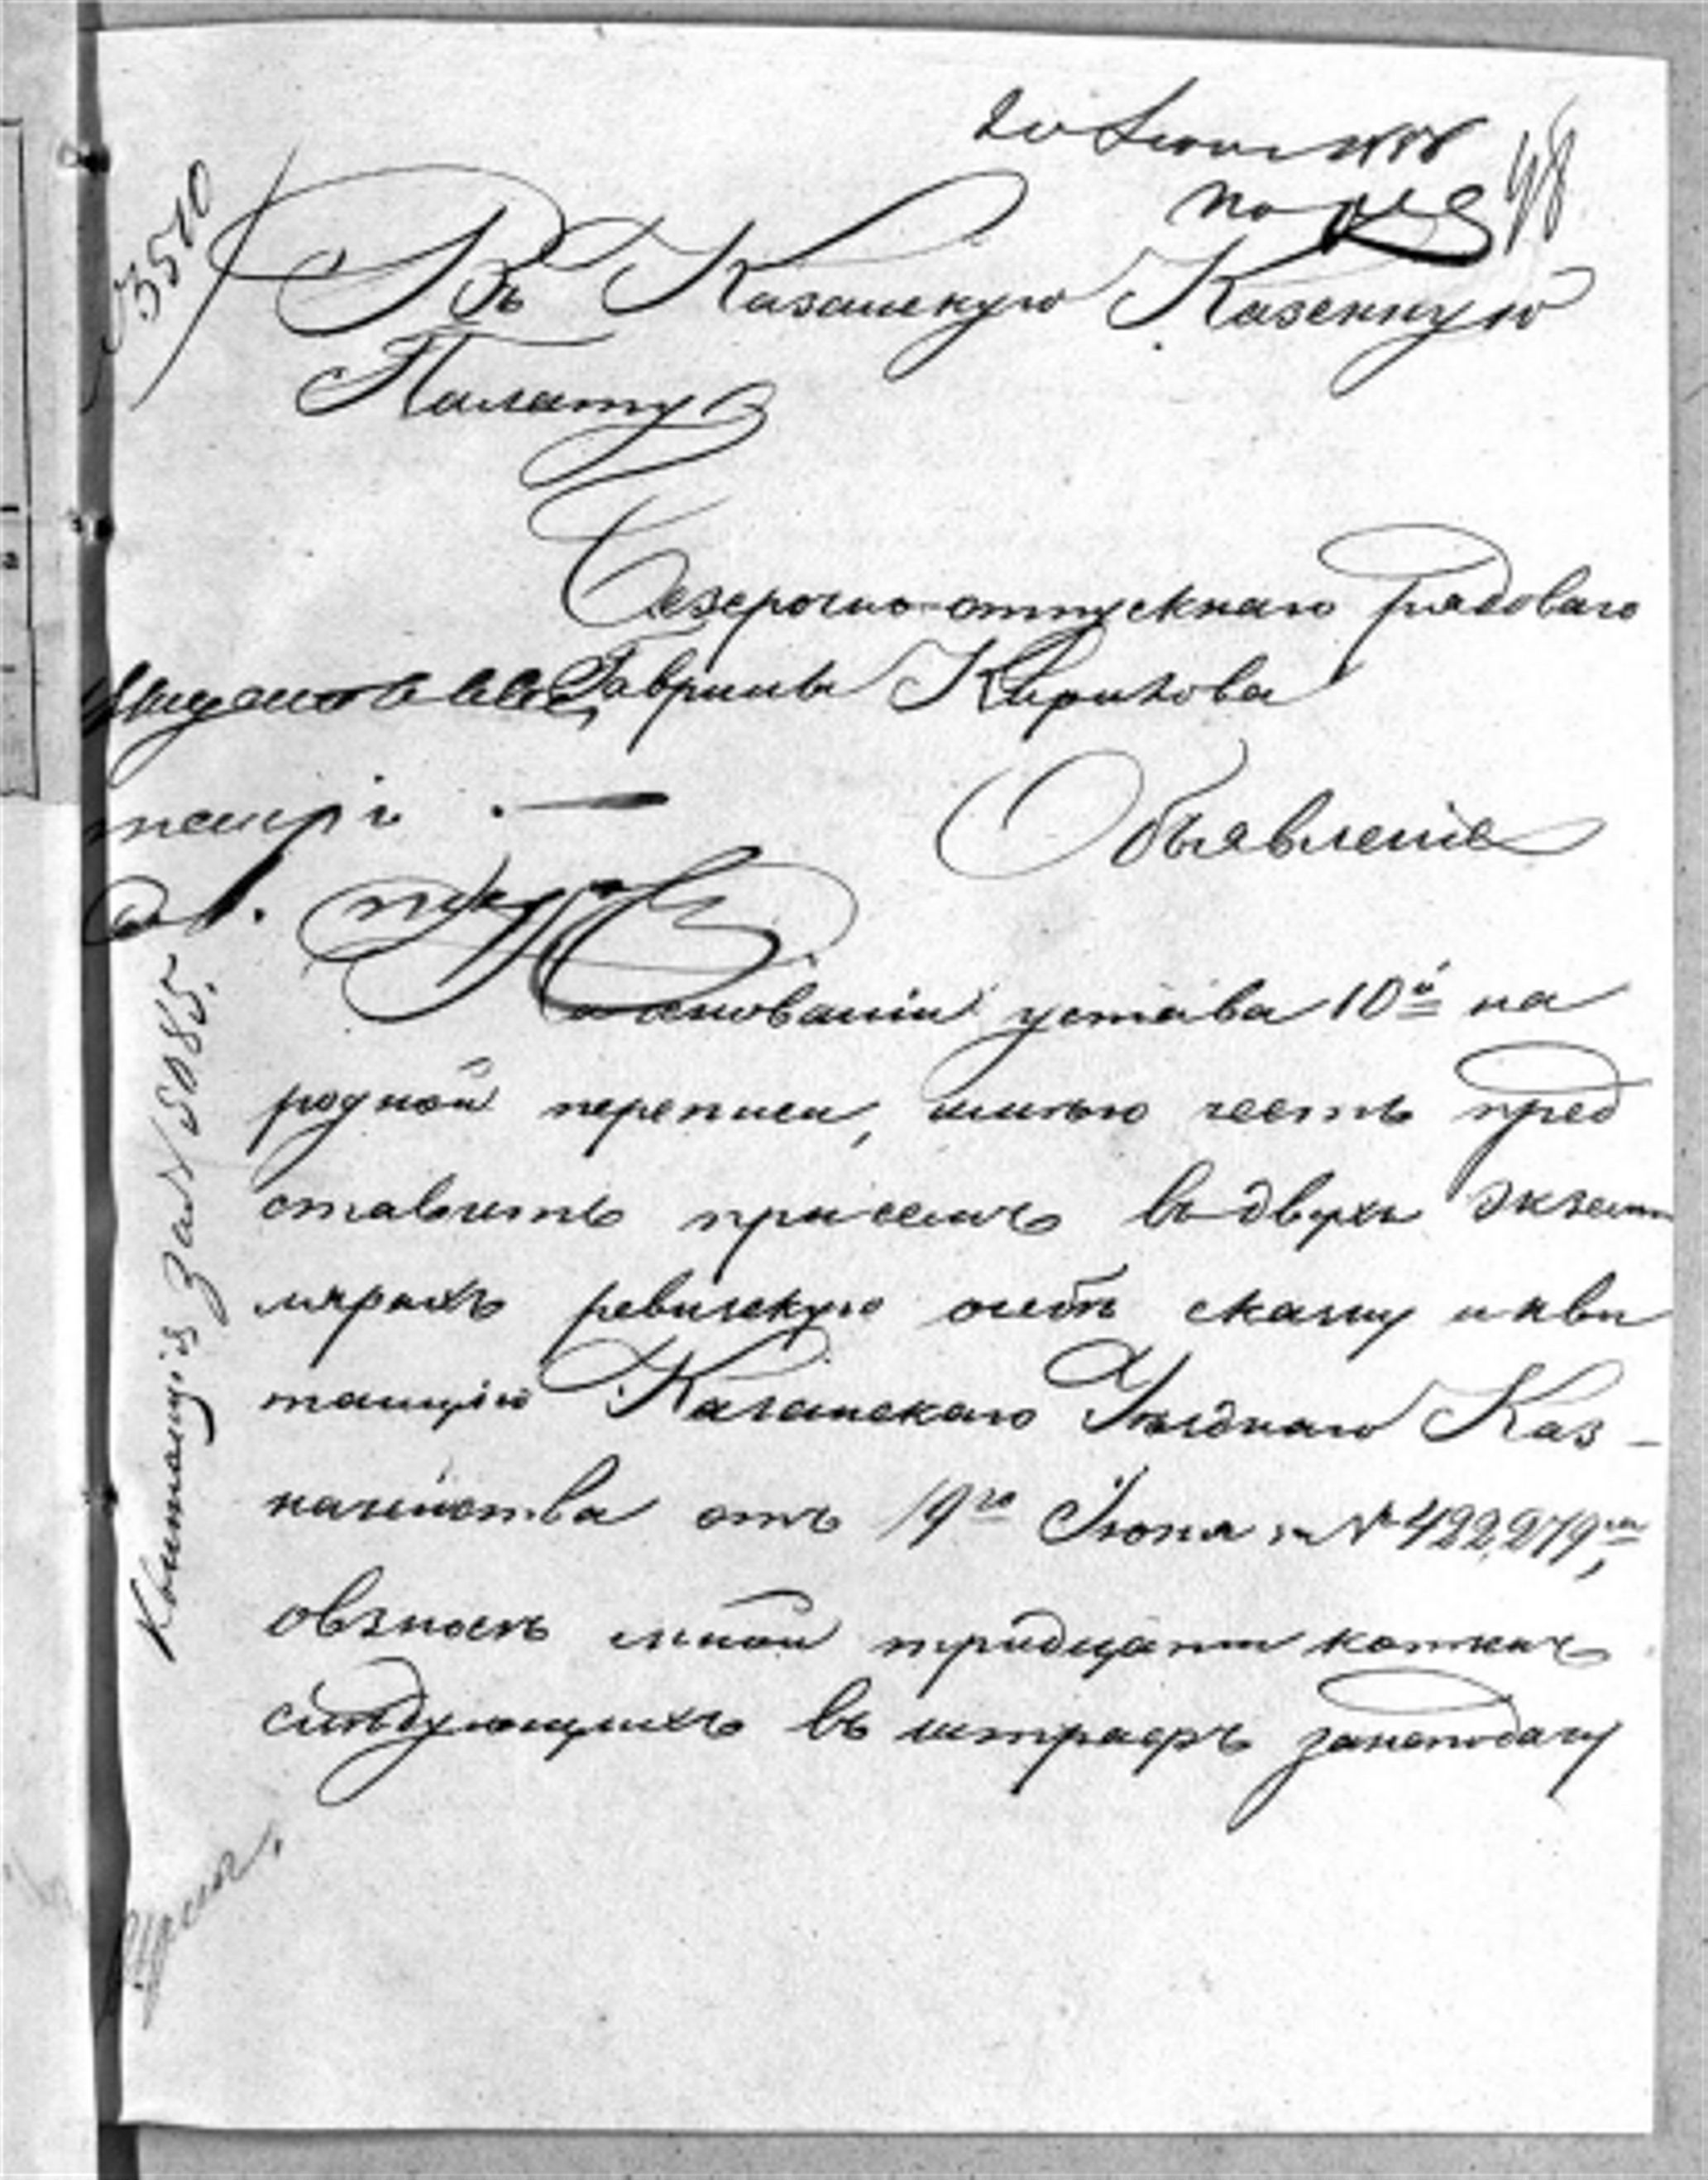 20 Июня
48
3510
Въ Казанскую Казенную
Палату
Безсрочно-отпускнаго рядоваго
Гаврилы Кирилова
Объявленіе
На основаніи устава 10й на
родной переписи, имѣю честь пред
ставить при семъ въ двухъ экземп
лярахъ ревизскую о себѣ сказку и кви
танцію Казанскаго Уѣзднаго Каз-
начейства отъ 19го Июня за № 422,279м,
о взносѣ мной тридцати копѣекъ
слѣдующихъ въ штрафъ за неподачу
Квитанція за № 5085.